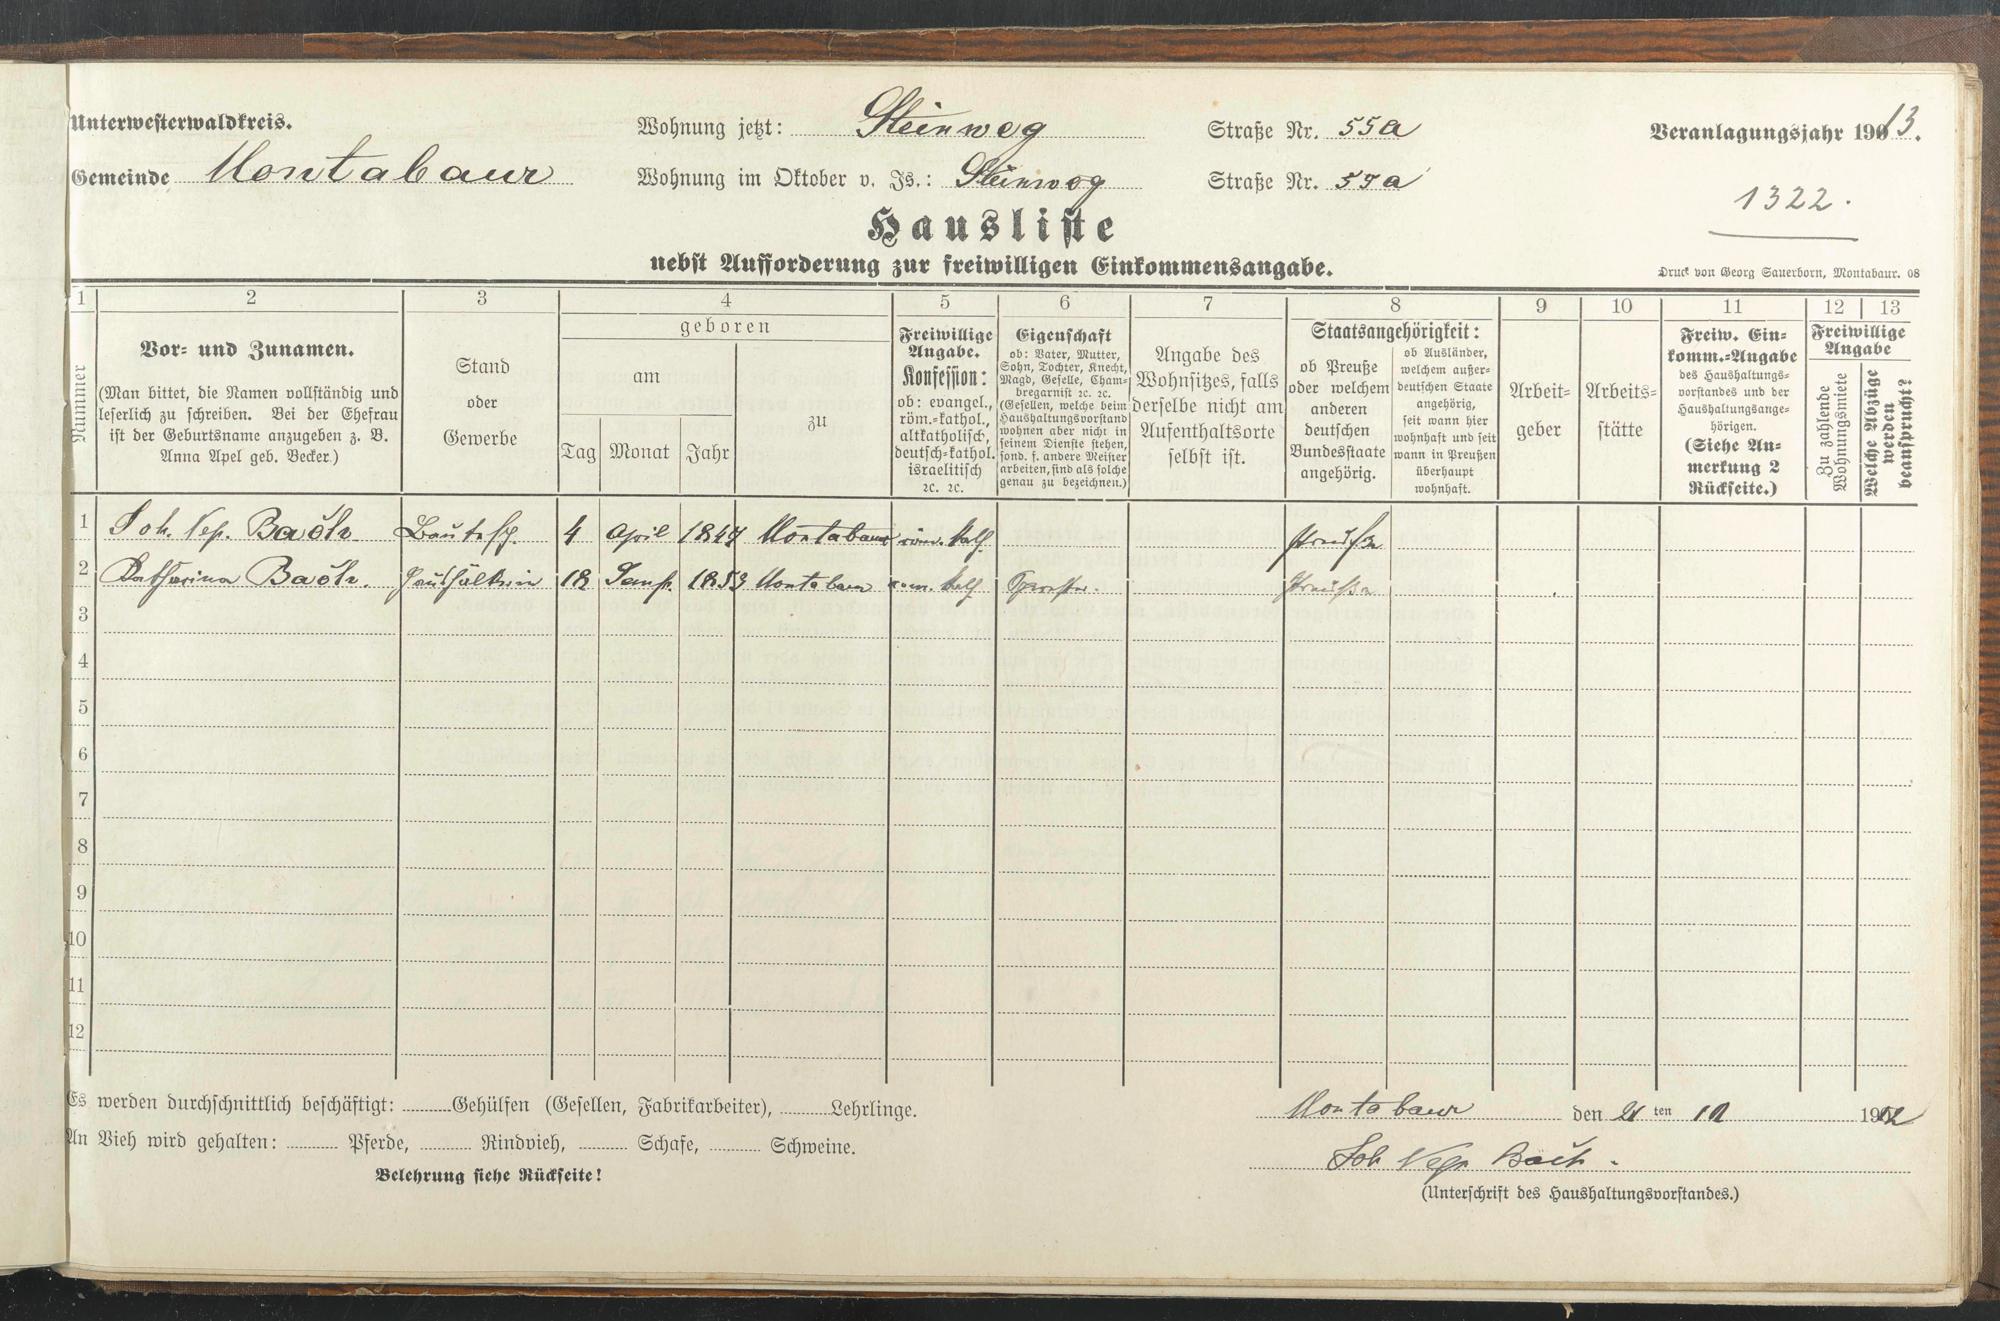 Unterwesterwaldkreis.
Gemeinde Montabaur
Wohnung jetzt: Steinweg Straße Nr. 55a
Wohnung im Oktober v. Js.: Steinweg Straße Nr. 55a
Veranlagungsjahr 1913.
1322.
Hausliste
nebst Aufforderung zur freiwilligen Einkommensangabe.
Druck von Georg Sauerborn, Montabaur. 08
1 2 3 4 5 6 7 8 9 10 11 12 13
Nummer
Vor- und Zunamen.
(Man bittet, die Namen vollständig und
leserlich zu schreiben. Bei der Ehefrau
ist der Geburtsname anzugeben z. B.
Anna Apel geb. Becker.)
Stand
oder
Gewerbe
geboren
am
Tag Monat Jahr
zu
Freiwillige
Angabe.
Konfession:
ob: evangel.,
röm.-kathol.,
altkatholisch,
deutsch-kathol.
israelitisch
ꝛc. ꝛc.
Eigenschaft
ob: Vater, Mutter,
Sohn, Tochter, Knecht,
Magd, Geselle, Cham-
bregarnist ꝛc. ꝛc.
(Gesellen, welche beim
Haushaltungsvorstand
wohnen aber nicht in
seinem Dienste stehen,
sond. f. andere Meister
arbeiten, sind als solche
genau zu bezeichnen.)
Angabe des
Wohnsitzes, falls
derselbe nicht am
Aufenthaltsorte
selbst ist.
Staatsangehörigkeit:
ob Preuße
oder welchem
anderen
deutschen
Bundesstaate
angehörig.
ob Ausländer,
welchem außer-
deutschen Staate
angehörig,
seit wann hier
wohnhaft und seit
wann in Preußen
überhaupt
wohnhaft.
Arbeit-
geber
Arbeits-
stätte
Freiw. Ein-
komm.-Angabe
des Haushaltungs-
vorstandes und der
Haushaltungsange-
hörigen.
(Siehe An-
merkung 2
Rückseite.)
Freiwillige
Angabe
Zu zahlende
Wohnungsmiete
Welche Abzüge
werden
beansprucht?
1 Joh. Nep. Bach 4 April 1847 Montabaur röm. kath. Preuße
2 Katharina Bach. Haushälterin 18 1853 Montabaur röm. kath. Schwester. Preuße
3
4
5
6
7
8
9
10
11
12
Es werden durchschnittlich beschäftigt: Gehülfen (Gesellen, Fabrikarbeiter), Lehrlinge.
An Vieh wird gehalten: Pferde, Rindvieh, Schafe, Schweine.
Belehrung siehe Rückseite!
Montabaur den 21 ten 10 1912
Joh Nep Bach.
(Unterschrift des Haushaltungsvorstandes.)